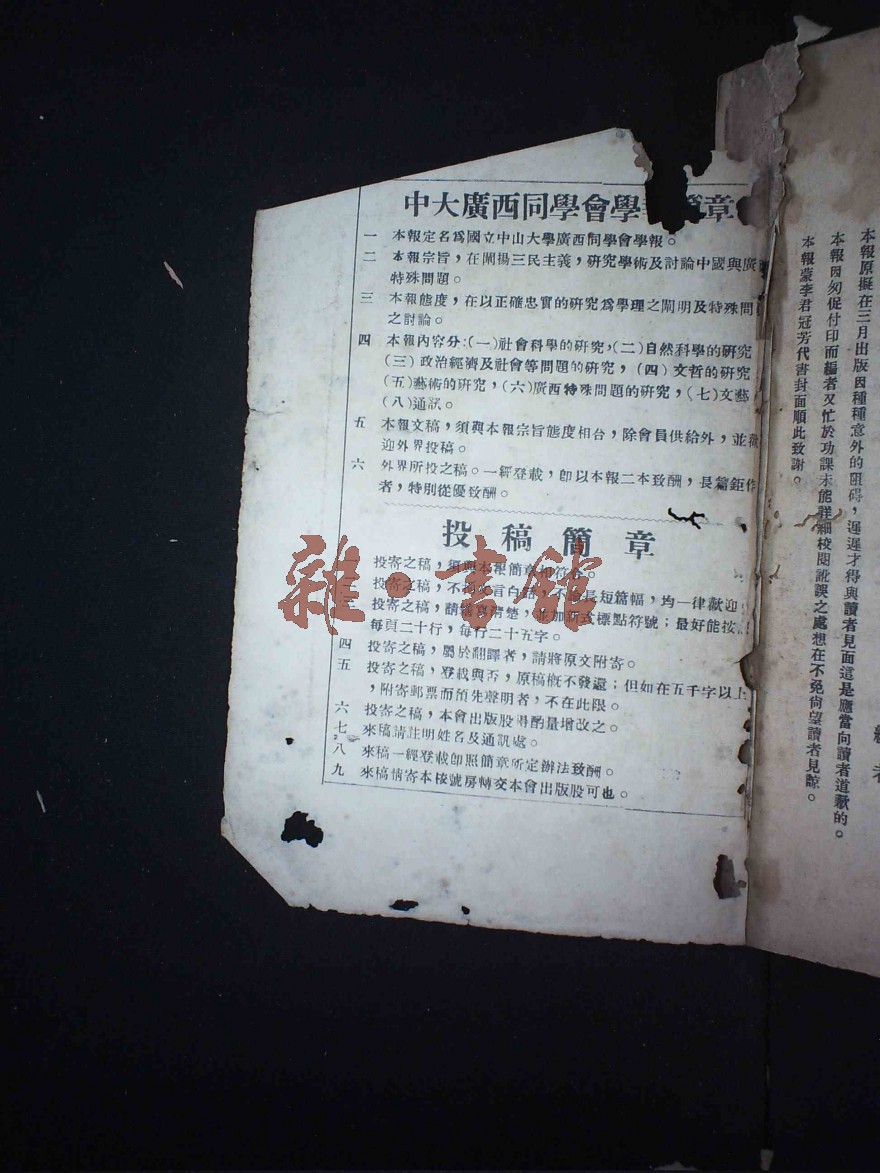 中大廣西同學會學 章
一 本報定名爲國立中山大學廣西同學會學報。
二 本報宗旨,在闡揚三民主義,研究學術及討論中國與廣
特殊問題。
三 本報態度,在以正確忠實的研究爲學理之闡明及特殊問
之討論。
四 本報內容分:(一)社會科學的研究,(二)自然科學的研究
(三)政治經濟及社會等問題的研究,(四)文哲的研究
(五)藝術的研究,(六)廣西特殊問題的研究,(七)文藝
(八)通訊。
五 本報文稿,須與本報宗旨態度相合,除會員供給外,並
迎外界投稿。
六 外界所投之稿。一經登載,卽以本報二本致酬,長篇鉅作
者,特別從優致酬。
投稿簡章
投寄之稿,須與本報簡章相符合。
投寄之稿,不 言白 ,不 長短篇幅,均一律歡迎
三 投寄之稿,請繕寫清楚,並加新式標點符號;最好能按
每頁二十行,每行二十五字。
四 投寄之稿,屬於翻譯者,請將原文附寄。
五 投寄之稿,登載與否,原稿槪不發還;但如在五千字以上
,附寄郵票而預先聲明者,不在此限。
六 投寄之稿,本會出版股得酌量增改之。
七 來稿請註明姓名及通訊處。
八 來稿一經登載卽照簡章所定辦法致酬。
九 來稿請寄本校號房轉交本會出版股可也。
雜·書館
本報原擬在三月出版因種種意外的阻碍,遲遲才得與讀者見面這是應當向讀者道歉的。
本報因匆促付印而編者又忙於功課未能詳細校閱訛誤之處想在不免尙望讀者見諒。
本報蒙李君冠芳代書封面順此致謝。
編者